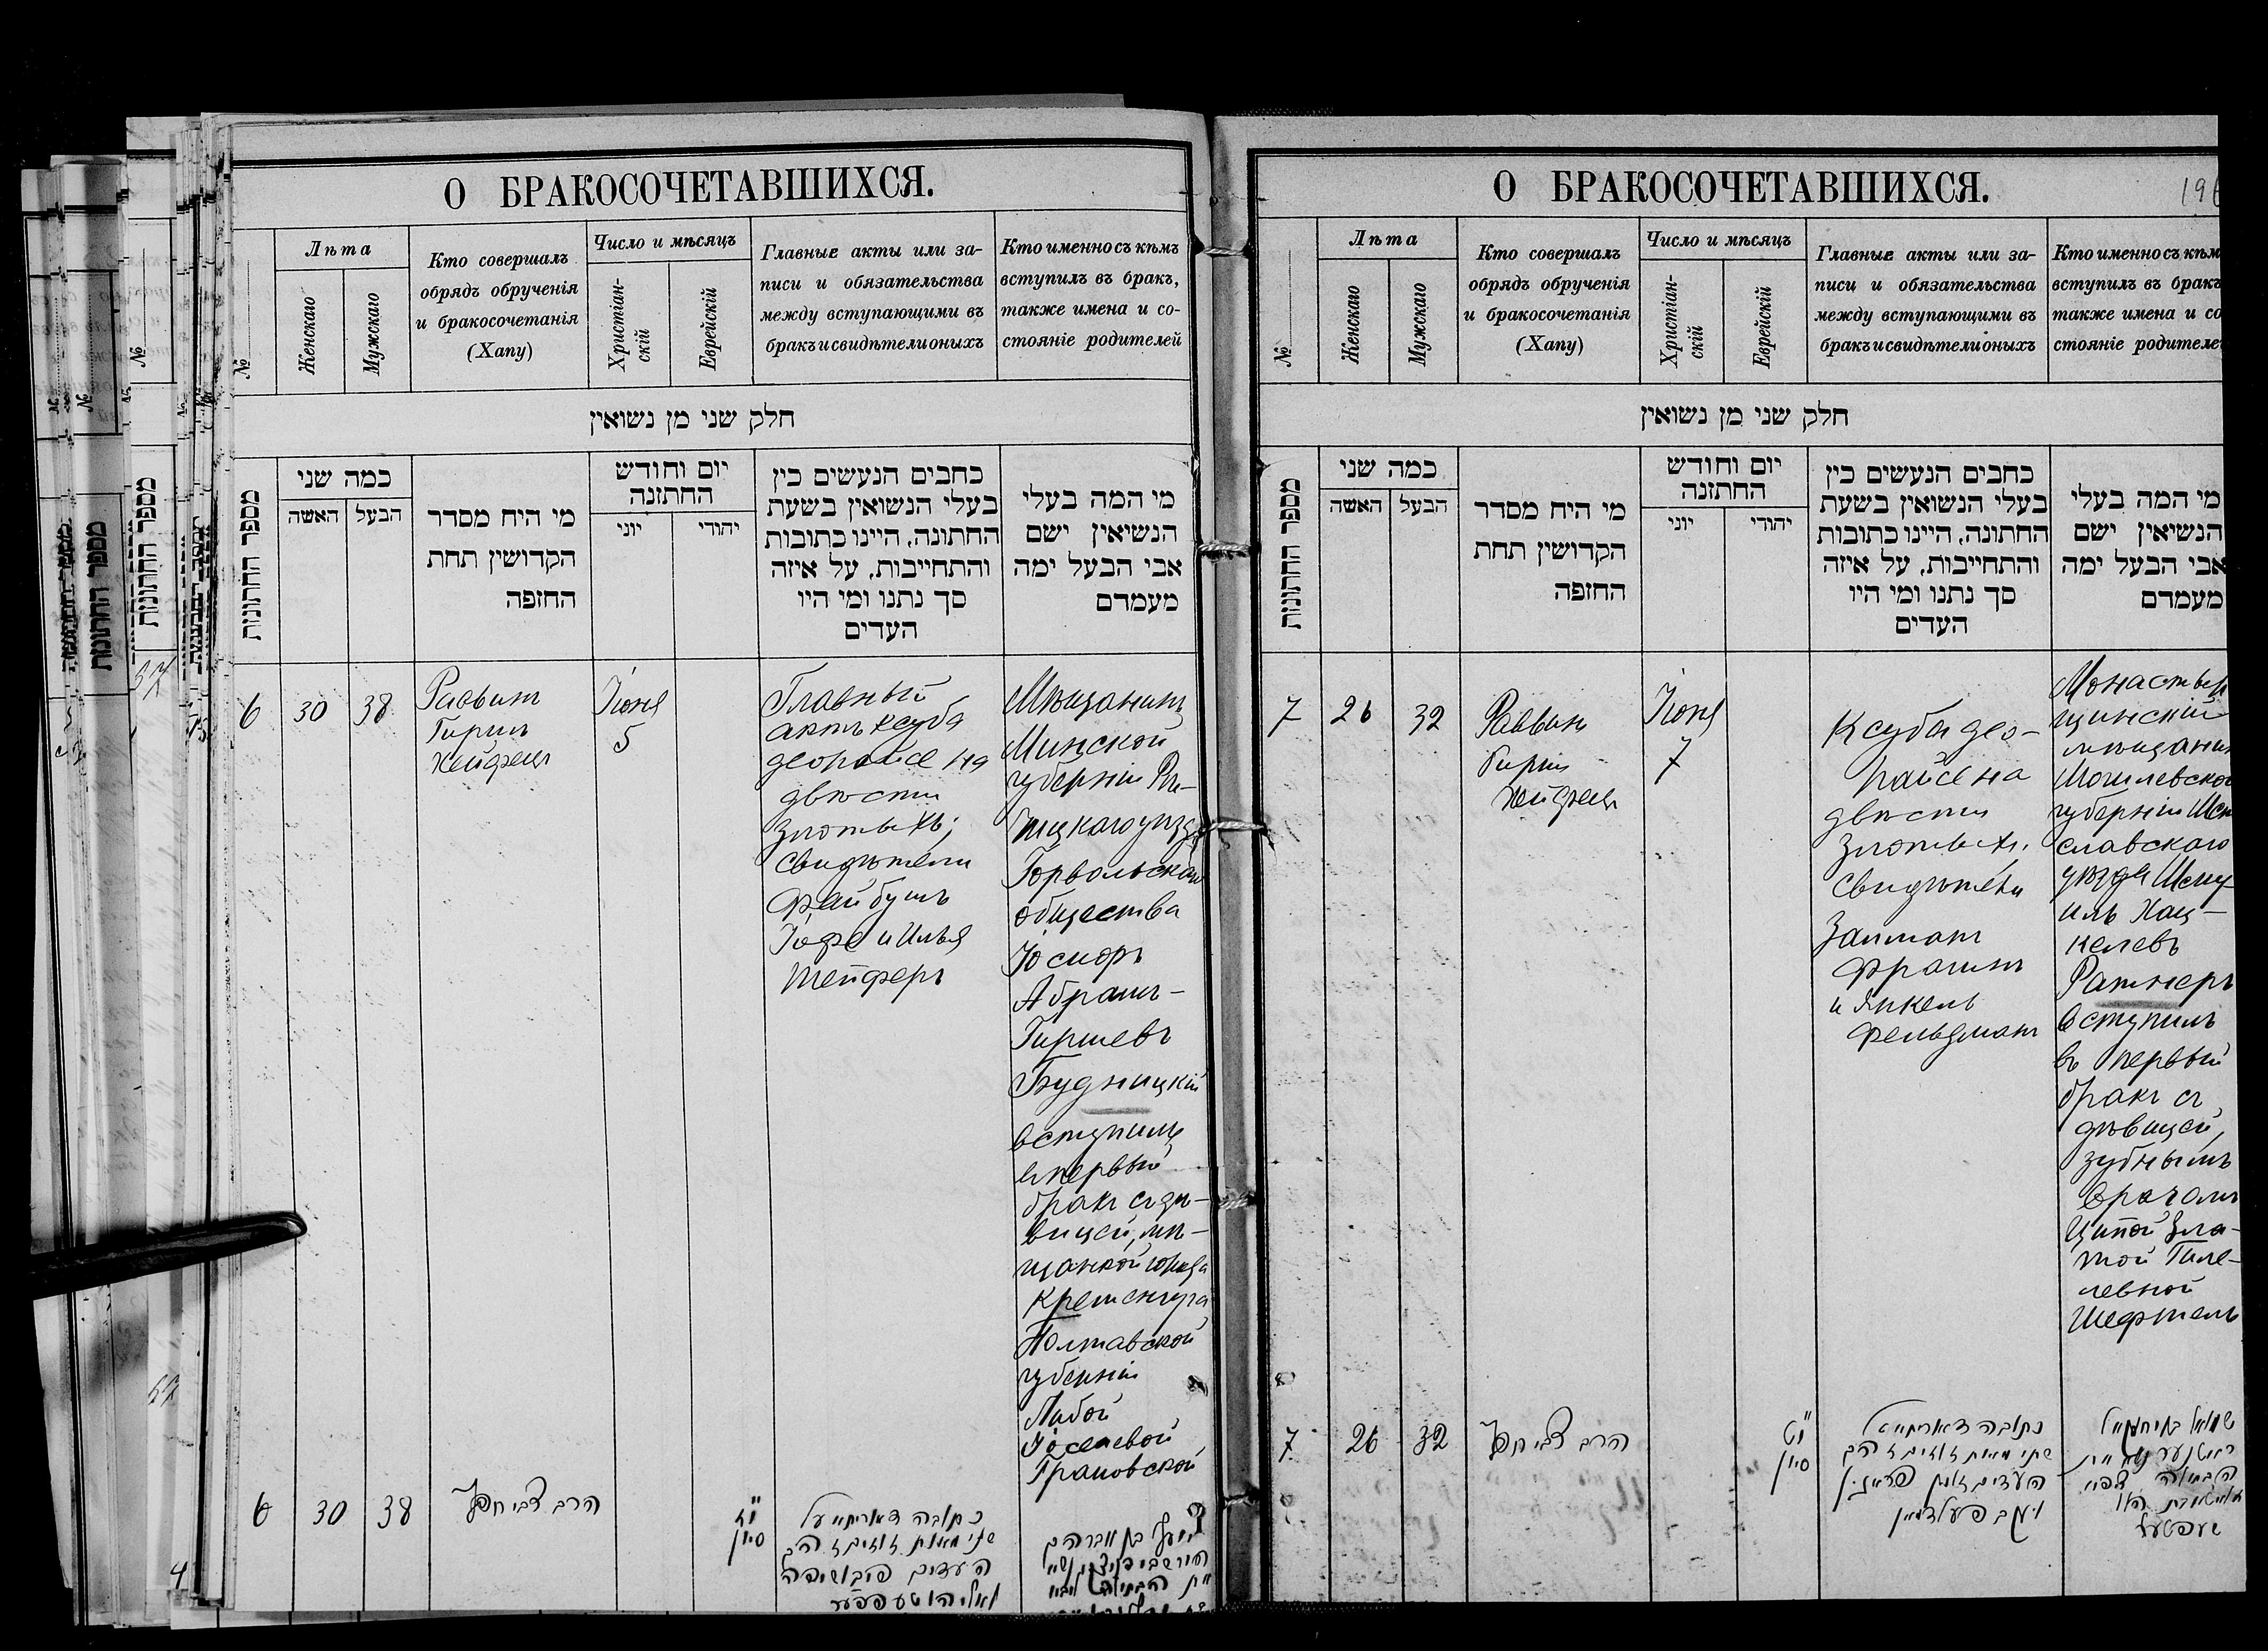 О БРАКОСОЧЕТАВШИХСЯ.
№
Лѣта
Женскаго
Мужскаго
Кто совершалъ
обрядъ обрученія
и бракосочетанія
(Хапу)
Число и мѣсяцъ
Христіан-
скій
Еврейскій
Главные акты или за-
писи и обязательства
между вступающими въ
бракъ и свидѣтели оныхъ
Кто именно съ кѣмъ
вступилъ въ бракъ,
также имена и со-
стояніе родителей
חלק שני מן נשואין
מספר החתונות
כמה שני
האשה
הבעל
מי היח מסדר
הקדושין תחת
החזפה
יום וחודש
החתזנה
יוני
יהודי
כחבים הנעשים כין
בעלי הנשואין בשעת
החתונה, היינו כתובות
והתחייבות, על איזה
סך נתנו ומי היו
העדים
מי המה בעלי
הנשיאין ישם
אבי הבעל ימה
מעמדם
6
30
38
Раввинъ
Гиршъ
Хейфецъ
Іюня
5
Главный
актъ ксуба
деорайсе на
двѣсти
злотыхъ;
свидѣтели
Файбушъ
Іофе и Илья
Тейферъ
Мѣщанинъ
Минской
губерніи Рѣ-
чицкаго уѣзда
Горвольскаго
общества
Іосифъ
Абрамъ-
Гиршевъ
Будницкій
вступилъ
въ первый
бракъ съ дѣ-
вицей, мѣ-
щанкой города
Кременчуга
Полтавской
губерніи
Либой
Іоселевой
Грановской
6
30
38
הרב צבי חפץ
י"ז
סיון
כתובה דאורייתא על
שתי מאות זוזים זהב
העדים פייבוש יפה
ואליהו טעפפער
יוסף בן אברהם
О БРАКОСОЧЕТАВШИХСЯ.
196
№
Лѣта
Женскаго
Мужскаго
Кто совершалъ
обрядъ обрученія
и бракосочетанія
(Хапу)
Число и мѣсяцъ
Христіан-
скій
Еврейскій
Главные акты или за-
писи и обязательства
между вступающими въ
бракъ и свидѣтели оныхъ
Кто именно съ кѣм
вступилъ въ бракъ
также имена и со
стояніе родителе
חלק שני מן נשואין
מספר החתונות
כמה שני
האשה
הבעל
מי היח מסדר
הקדושין תחת
החזפה
יום וחודש
החתזנה
יוני
יהודי
כחבים הנעשים כין
בעלי הנשואין בשעת
החתונה, היינו כתובות
והתחייבות, על איזה
סך נתנו ומי היו
העדים
מי המה בעלי
הנשיאין ישם
אבי הבעל ימה
מעמדם
7
26
32
Раввинъ
Гиршъ
Хейфецъ
Іюня
7
Ксуба део-
райсе на
двѣсти
злотыхъ.
Свидѣтели
Залманъ
Фрагинъ
и Янкель
Фельдманъ
Монастыр
щинскій
мѣщанинъ
Могилевской
губерніи Мсти
славскаго
уѣзда Шму-
иль Хац-
келевъ
Ратнеръ
вступилъ
въ первый
бракъ съ
дѣвицей,
зубнымъ
врачомъ
Ципой Зла-
той Гиле-
левной
Шефтель
7
26
32
הרב צבי חפץ
י"ט
סיון
כתובה דאורייתא על
שתי מאות זוזים זהב
העדים זלמן פראגין
ויעקב פעלדמאן
שמואל בן יחזקאל
ראטנער
הבתולה ציפא
שעפטעל